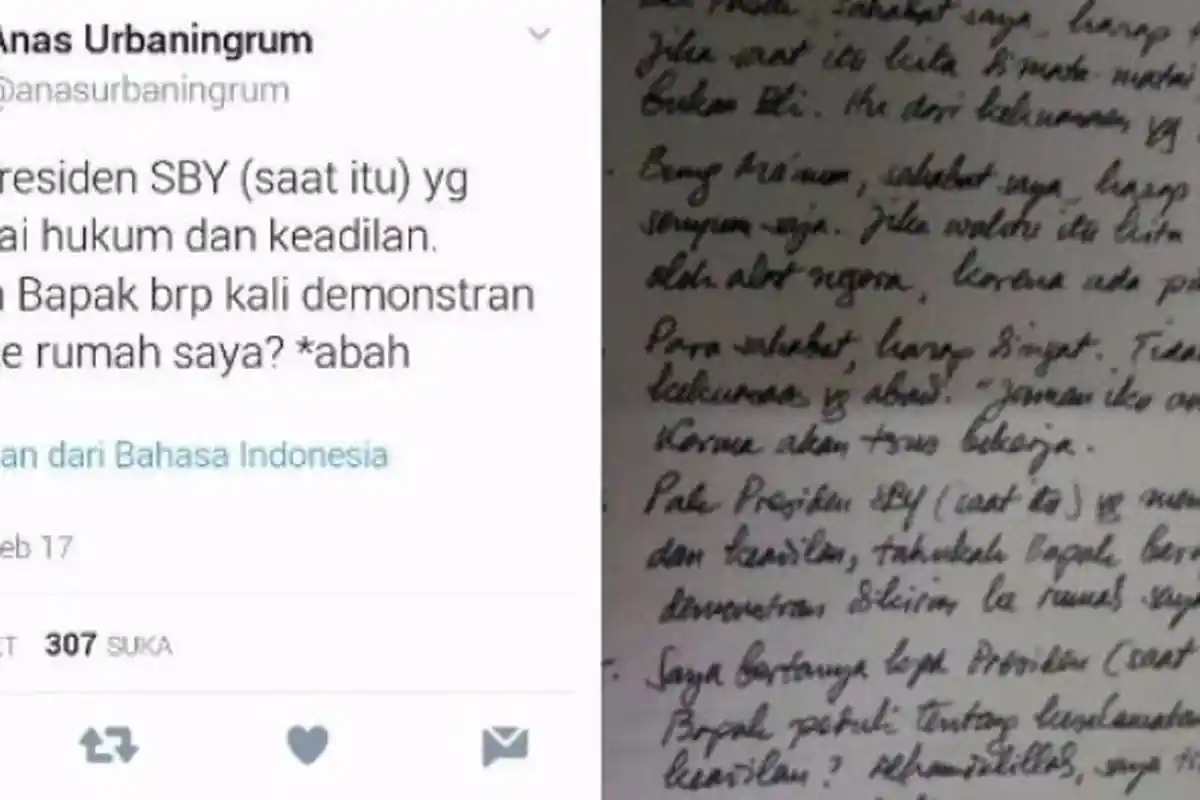 Anas Urbaningrum
@anasurbaningrum
residen SBY (saat itu) yg
ai hukum dan keadilan.
Bapak brp kali demonstran
e rumah saya? *abah
an dari Bahasa Indonesia
eb 17
ET 307 SUKA
sahabat saya, harap
Jika saat itu kita dimata-matai
bukan Itu dari kekuasaan yg
Bung Ma'mun, sahabat saya, harap
senyum saja. Jika waktu itu kita
oleh alat negara, karena ada
Para sahabat, harap diingat.
kekuasaan yg abadi.
Karma akan terus bekerja.
Pak Presiden SBY (saat itu) yg
dan keadilan, tahukah Bapak
demonstran dikirim ke rumah saya
Saya bertanya kpd Presiden (saat
Bapak peduli tentang keselamatan
keadilan? Alhamdulillah, saya